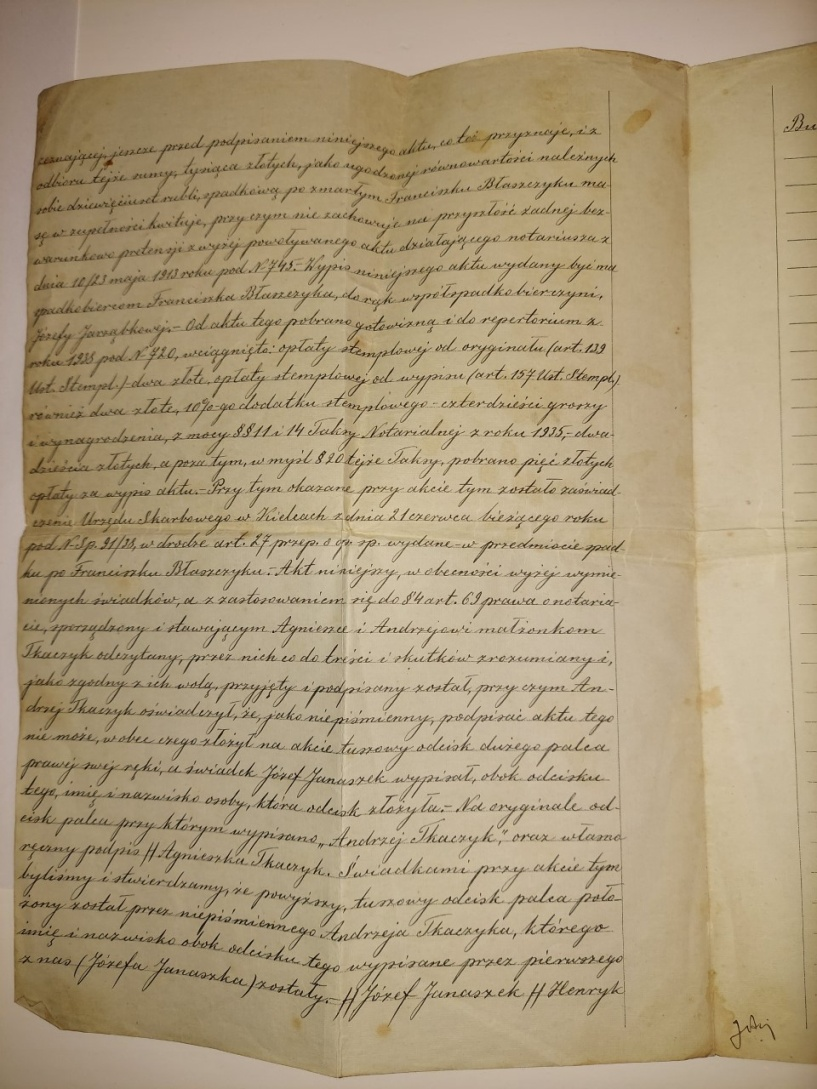 zeznającej, jeszcze przed podpisaniem niniejszego aktu, co też przyznaje, i z
odbioru tejże sumy, tysiąca złotych, jako ugodzonej równowartości należnych
sobie dziewięciuset rubli, spadkową po zmarłym Franciszku Błaszczyku ma-
sę w zupełności kwituje, przy czym nie zachowuje na przyszłość żadnej bez-
warunkowo pretensji z wyżej powoływanego aktu działającego notariusza z
dnia 10/23 maja 1913 roku pod N 745.- Wypis niniejszego aktu wydany być ma
spadkobiercom Franciszka Błaszczyka, do rąk współspadkobierczyni,
Józefy Jarząbkowej.- Od aktu tego pobrano gotowizną i do repertorium z
roku 1938 pod N 720, wciągnięto: opłaty stemplowej od oryginału (art. 139
Ust. Stempl.) dwa złote, opłaty stemplowej od wypisu (art. 157 Ust. Stempl.)
również dwa złote, 10%-go dodatku stemplowego - czterdzieści groszy
i wynagrodzenia, z mocy §§ 11 i 14 Taksy Notarialnej z roku 1935,- dwa-
dzieścia złotych, a poza tym, w myśl § 20 tejże Taksy, pobrano pięć złotych
opłaty za wypis aktu.- Przy tym okazane przy akcie tym zostało zaświad-
czenie Urzędu Skarbowego w Kielcach z dnia 21 czerwca bieżącego roku
pod N Sp. 91/38, w drodze art. 27 przep. o op. sp. wydane - w przedmiocie spad-
ku po Franciszku Błaszczyku.- Akt niniejszy, w obecności wyżej wymie-
nionych świadków, a z zastosowaniem się do § 4 art. 69 prawa o notaria-
cie, sporządzony i stawającym Agnieszce i Andrzejowi małżonkom
Tkaczyk odczytany, przez nich co do treści i skutków zrozumiany i,
jako zgodny z ich wolą, przyjęty i podpisany został, przy czym An-
drzej Tkaczyk oświadczył, że, jako niepiśmienny, podpisać aktu tego
nie może, wobec czego złożył na akcie tuszowy odcisk dużego palca
prawej swej ręki, a świadek Józef Janaszek wypisał, obok odcisku
tego, imię i nazwisko osoby, która odcisk złożyła.- Na oryginale od-
cisk palca przy którym wypisano „Andrzej Tkaczyk", oraz własno
ręczny podpis // Agnieszka Tkaczyk. Świadkami przy akcie tym
byliśmy i stwierdzamy, że powyższy, tuszowy odcisk palca poło-
żony został przez niepiśmiennego Andrzeja Tkaczyka, którego
imię i nazwisko obok odcisku tego wypisane przez pierwszego
z nas (Józefa Janaszka) zostały.- // Józef Janaszek // Henryk
Bu